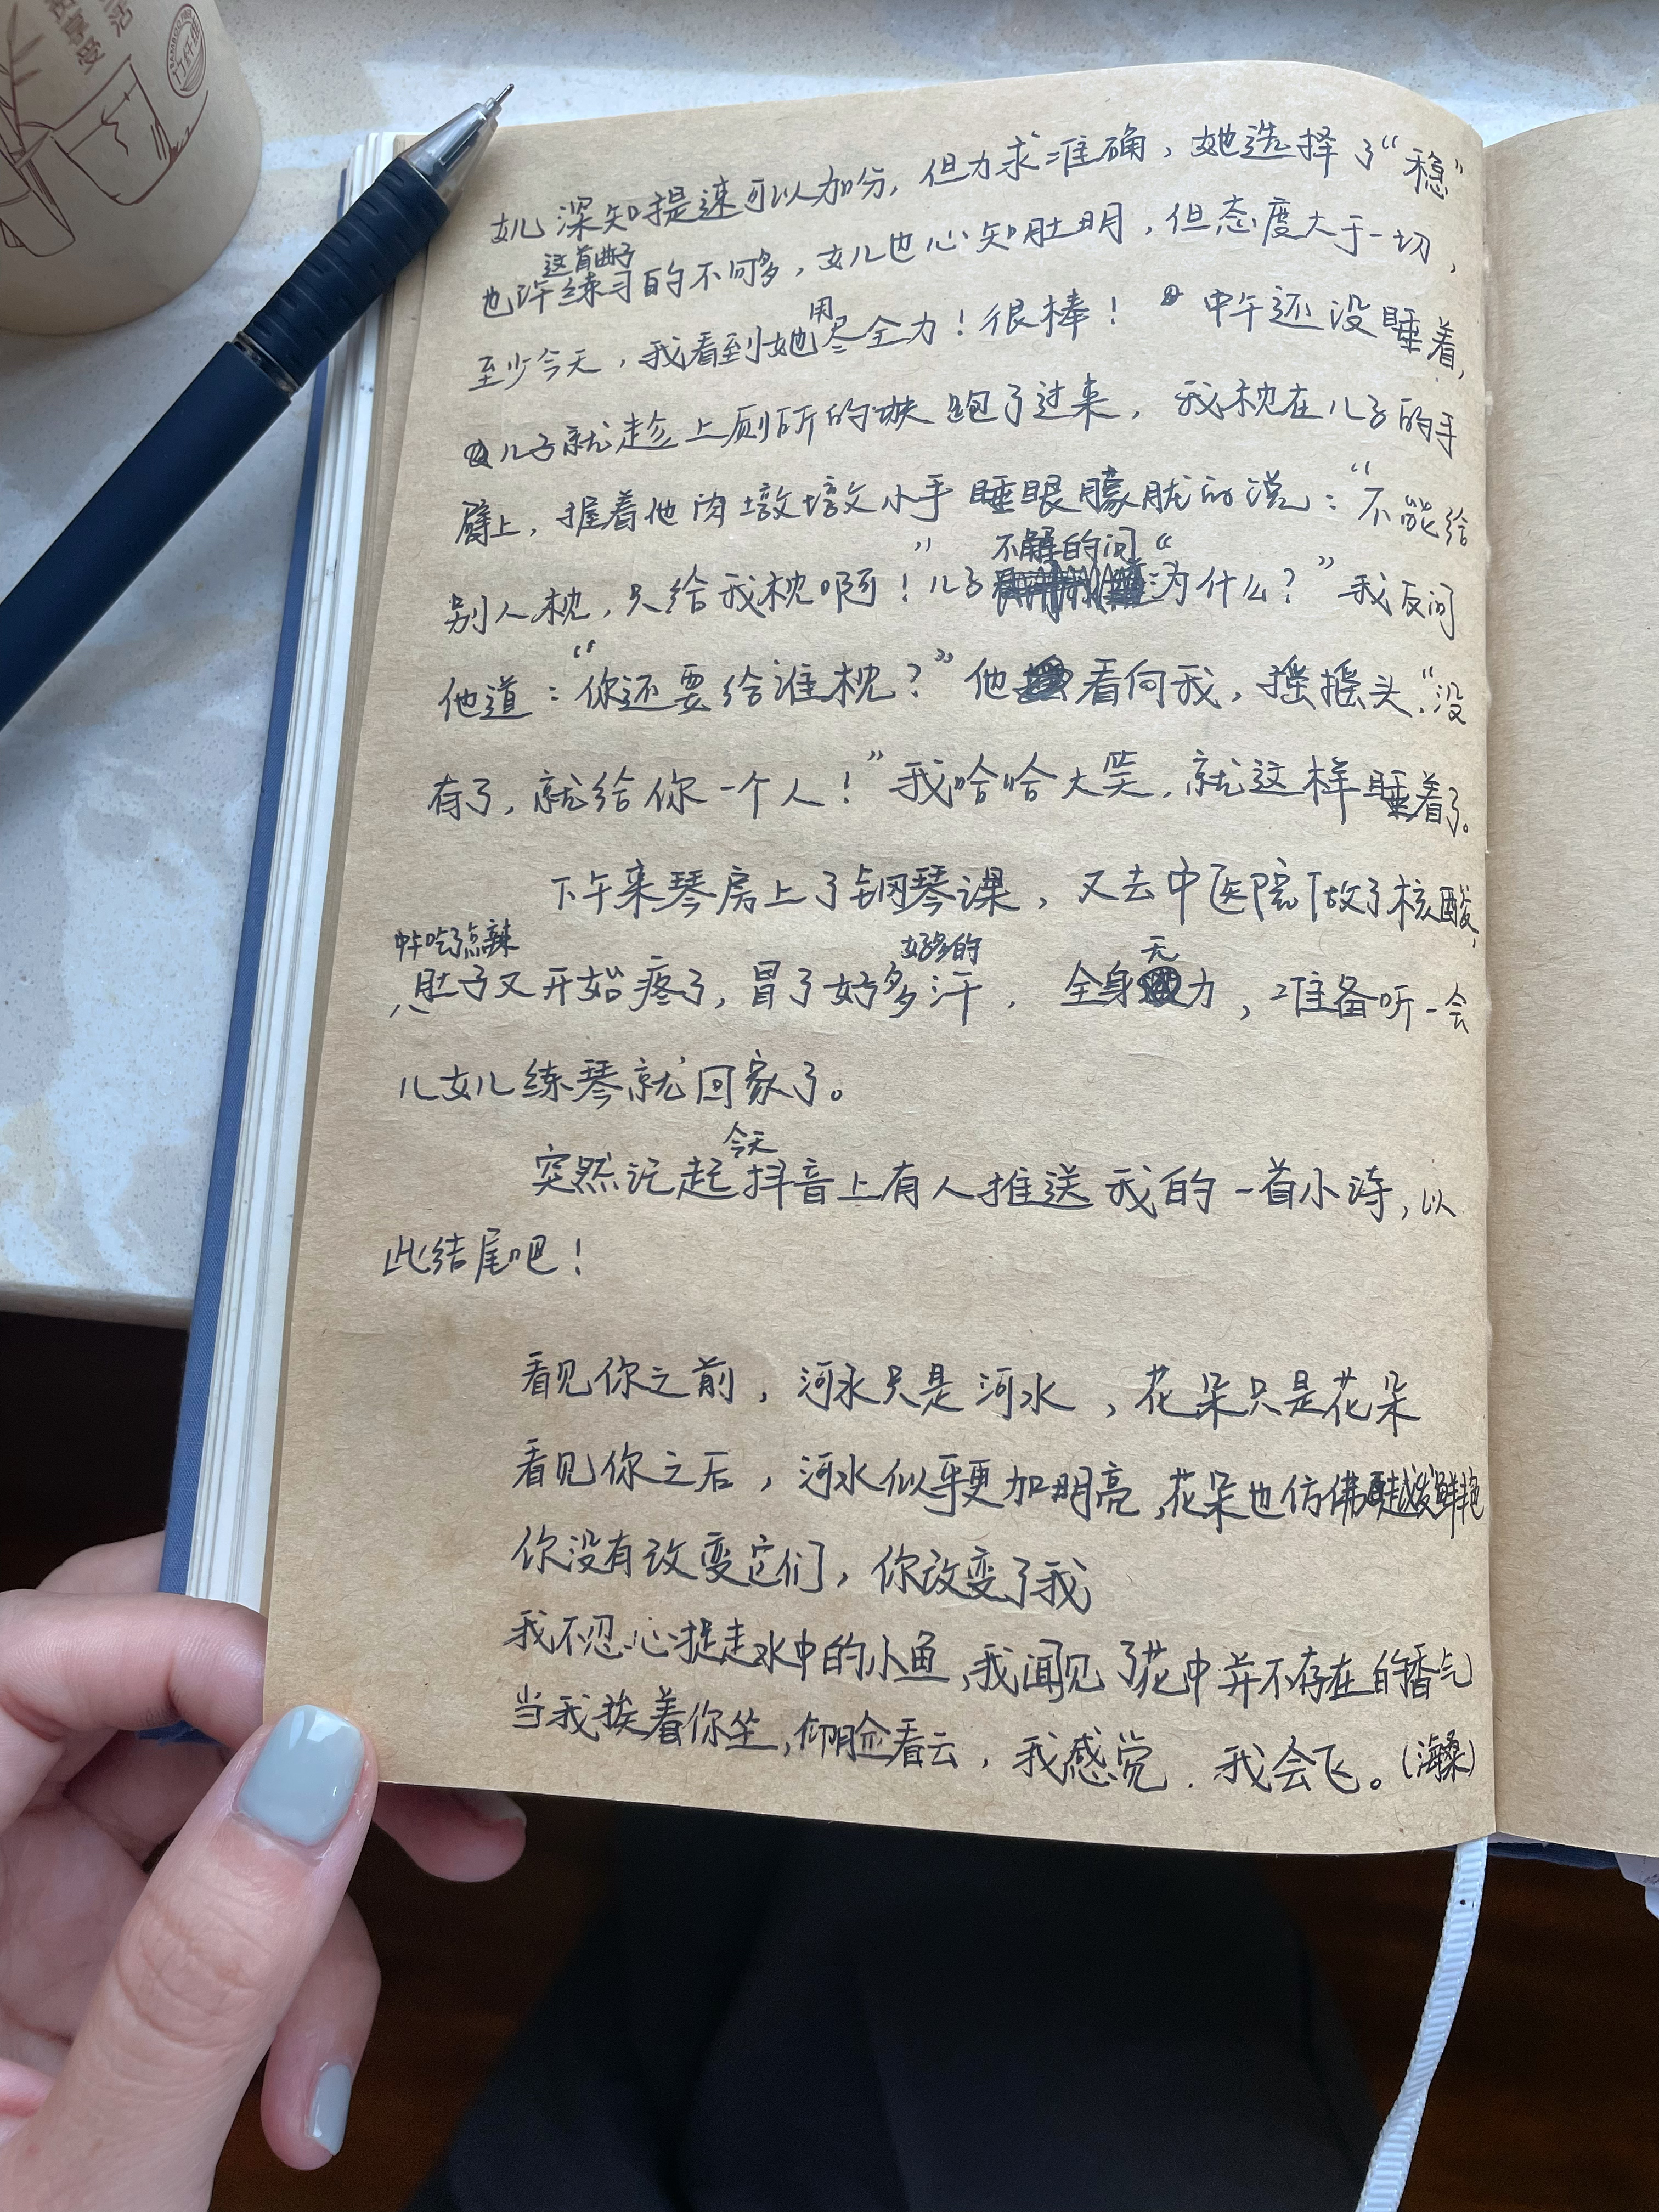 女儿深知提速可以加分，但力求准确，她选择了“稳”
这首曲子
也许练习的不够多，女儿也心知肚明，但态度大于一切，
用
至少今天，我看到她尽全力！很棒！中午还没睡着，
儿子就趁上厕所的功夫跑了过来，我枕在儿子的手
臂上，握着他肉墩墩小手睡眼朦胧的说：“不能给
不解的问“
别人枕，只给我枕啊！”儿子为什么？”我反问
他道：“你还要给谁枕？”他看向我，摇摇头，“没
有了，就给你一个人！”我哈哈大笑，就这样睡着了。
下午来琴房上了钢琴课，又去中医院做了核酸，
中午吃了点辣 好多的 无
肚子又开始疼了，冒了好多汗，全身力，准备听一会
儿女儿练琴就回家了。
今天
突然记起抖音上有人推送我的一首小诗，以
此结尾吧！
看见你之前，河水只是河水，花朵只是花朵
看见你之后，河水似乎更加明亮，花朵也仿佛越发鲜艳
你没有改变它们，你改变了我
我不忍心捉走水中的小鱼，我闻见了花中并不存在的香气
当我挨着你坐，仰脸看云，我感觉．我会飞。（海桑）
BAMBOO
竹纤维